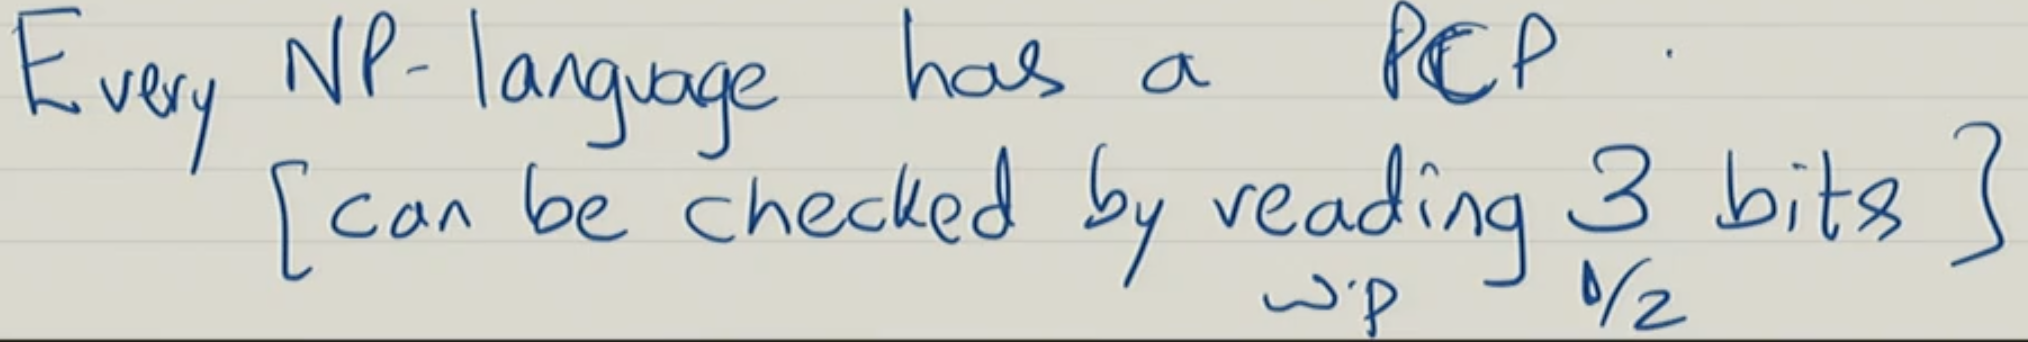 Every NP-language has a PCP.
[can be checked by reading 3 bits]
w.p 1/2